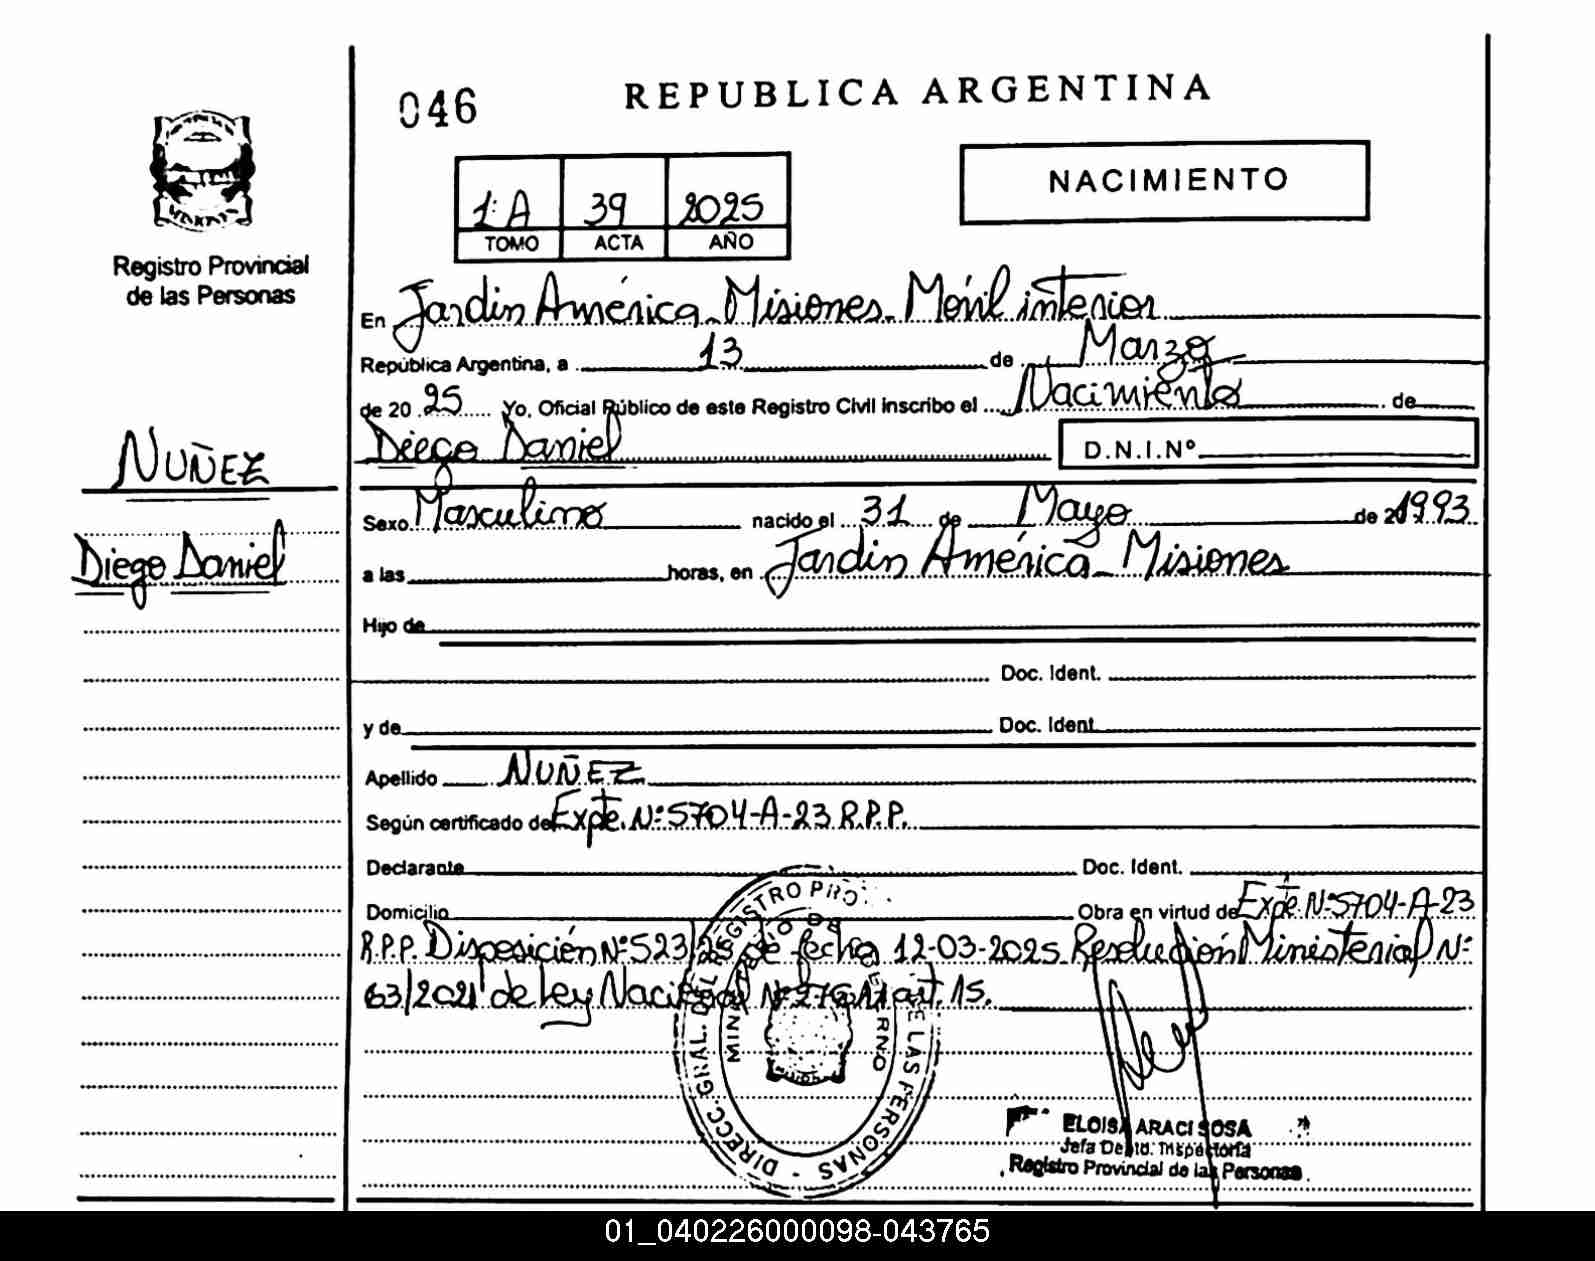 046
REPUBLICA ARGENTINA
NACIMIENTO
1: A 39 2025
TOMO ACTA AÑO
Registro Provincial
de las Personas
En Jardin América - Misiones - Móvil interior
República Argentina, a 13 de Marzo
de 20 25 Yo, Oficial Público de este Registro Civil inscribo el Nacimiento de
Diego Daniel D.N.I.Nº
NUÑEZ
Diego Daniel
Sexo Masculino nacido el 31 de Mayo de 1993
a las horas, en Jardin América - Misiones
Hijo de
Doc. Ident.
y de Doc. Ident.
Apellido NUÑEZ
Según certificado de Expte. Nº 5704-A-23 R.P.P.
Declarante Doc. Ident.
Domicilio Obra en virtud de Expte. Nº 5704-A-23
R.P.P. Disposición Nº 523/25 de fecha 12-03-2025 Resolución Ministerial Nº
63/2021 de Ley Nacional Nº art. 15.
DIRECC. GRAL. DEL REGISTRO DE LAS PERSONAS -
ELOISA ARACI SOSA
Jefa Depto. Inspectoría
Registro Provincial de las Personas
01_040226000098-043765